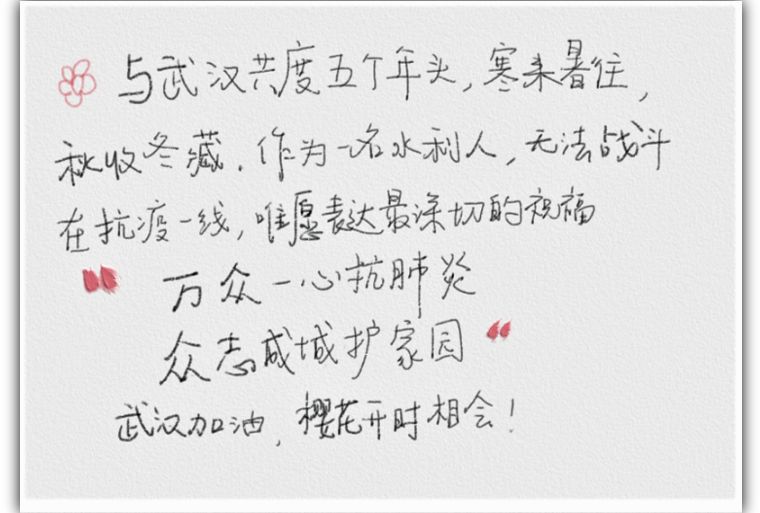 与武汉共度五个年头,寒来暑往,
秋收冬藏.作为一名水利人,无法战斗
在抗疫一线,唯愿表达最深切的祝福
“万众一心抗肺炎
众志成城护家园“
武汉加油,樱花开时相会!